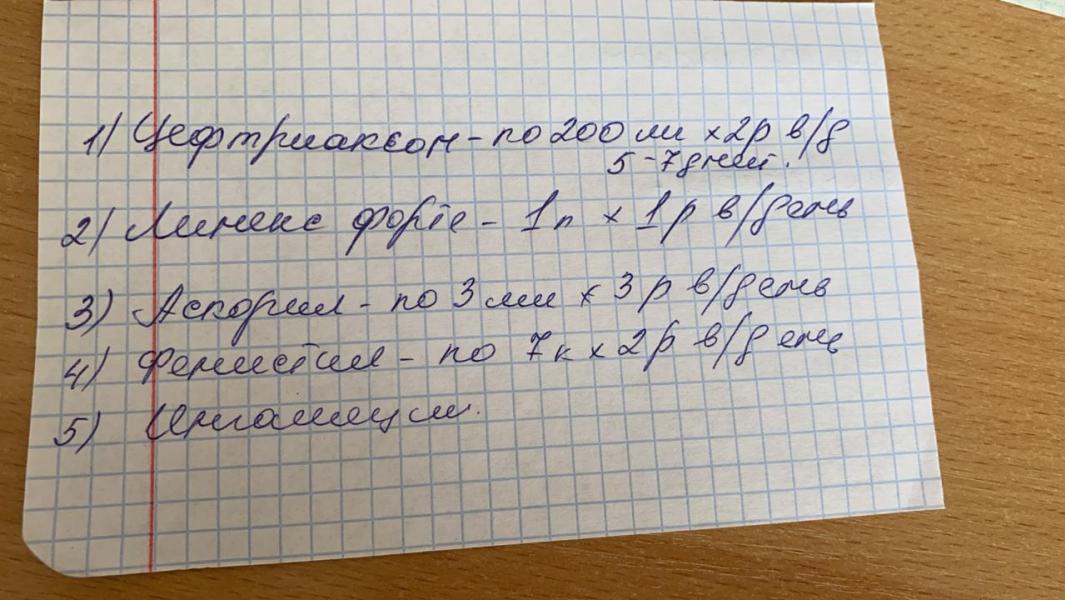 1) Цефтриаксон - по 200 мл x 2р в/д
5-7 дней.
2) Линекс форте - 1п x 1р в/день
3) Аскорил - по 3 мл x 3р в/день
4) Фенистил - по 7к x 2р в/день
5) Ингаляции.